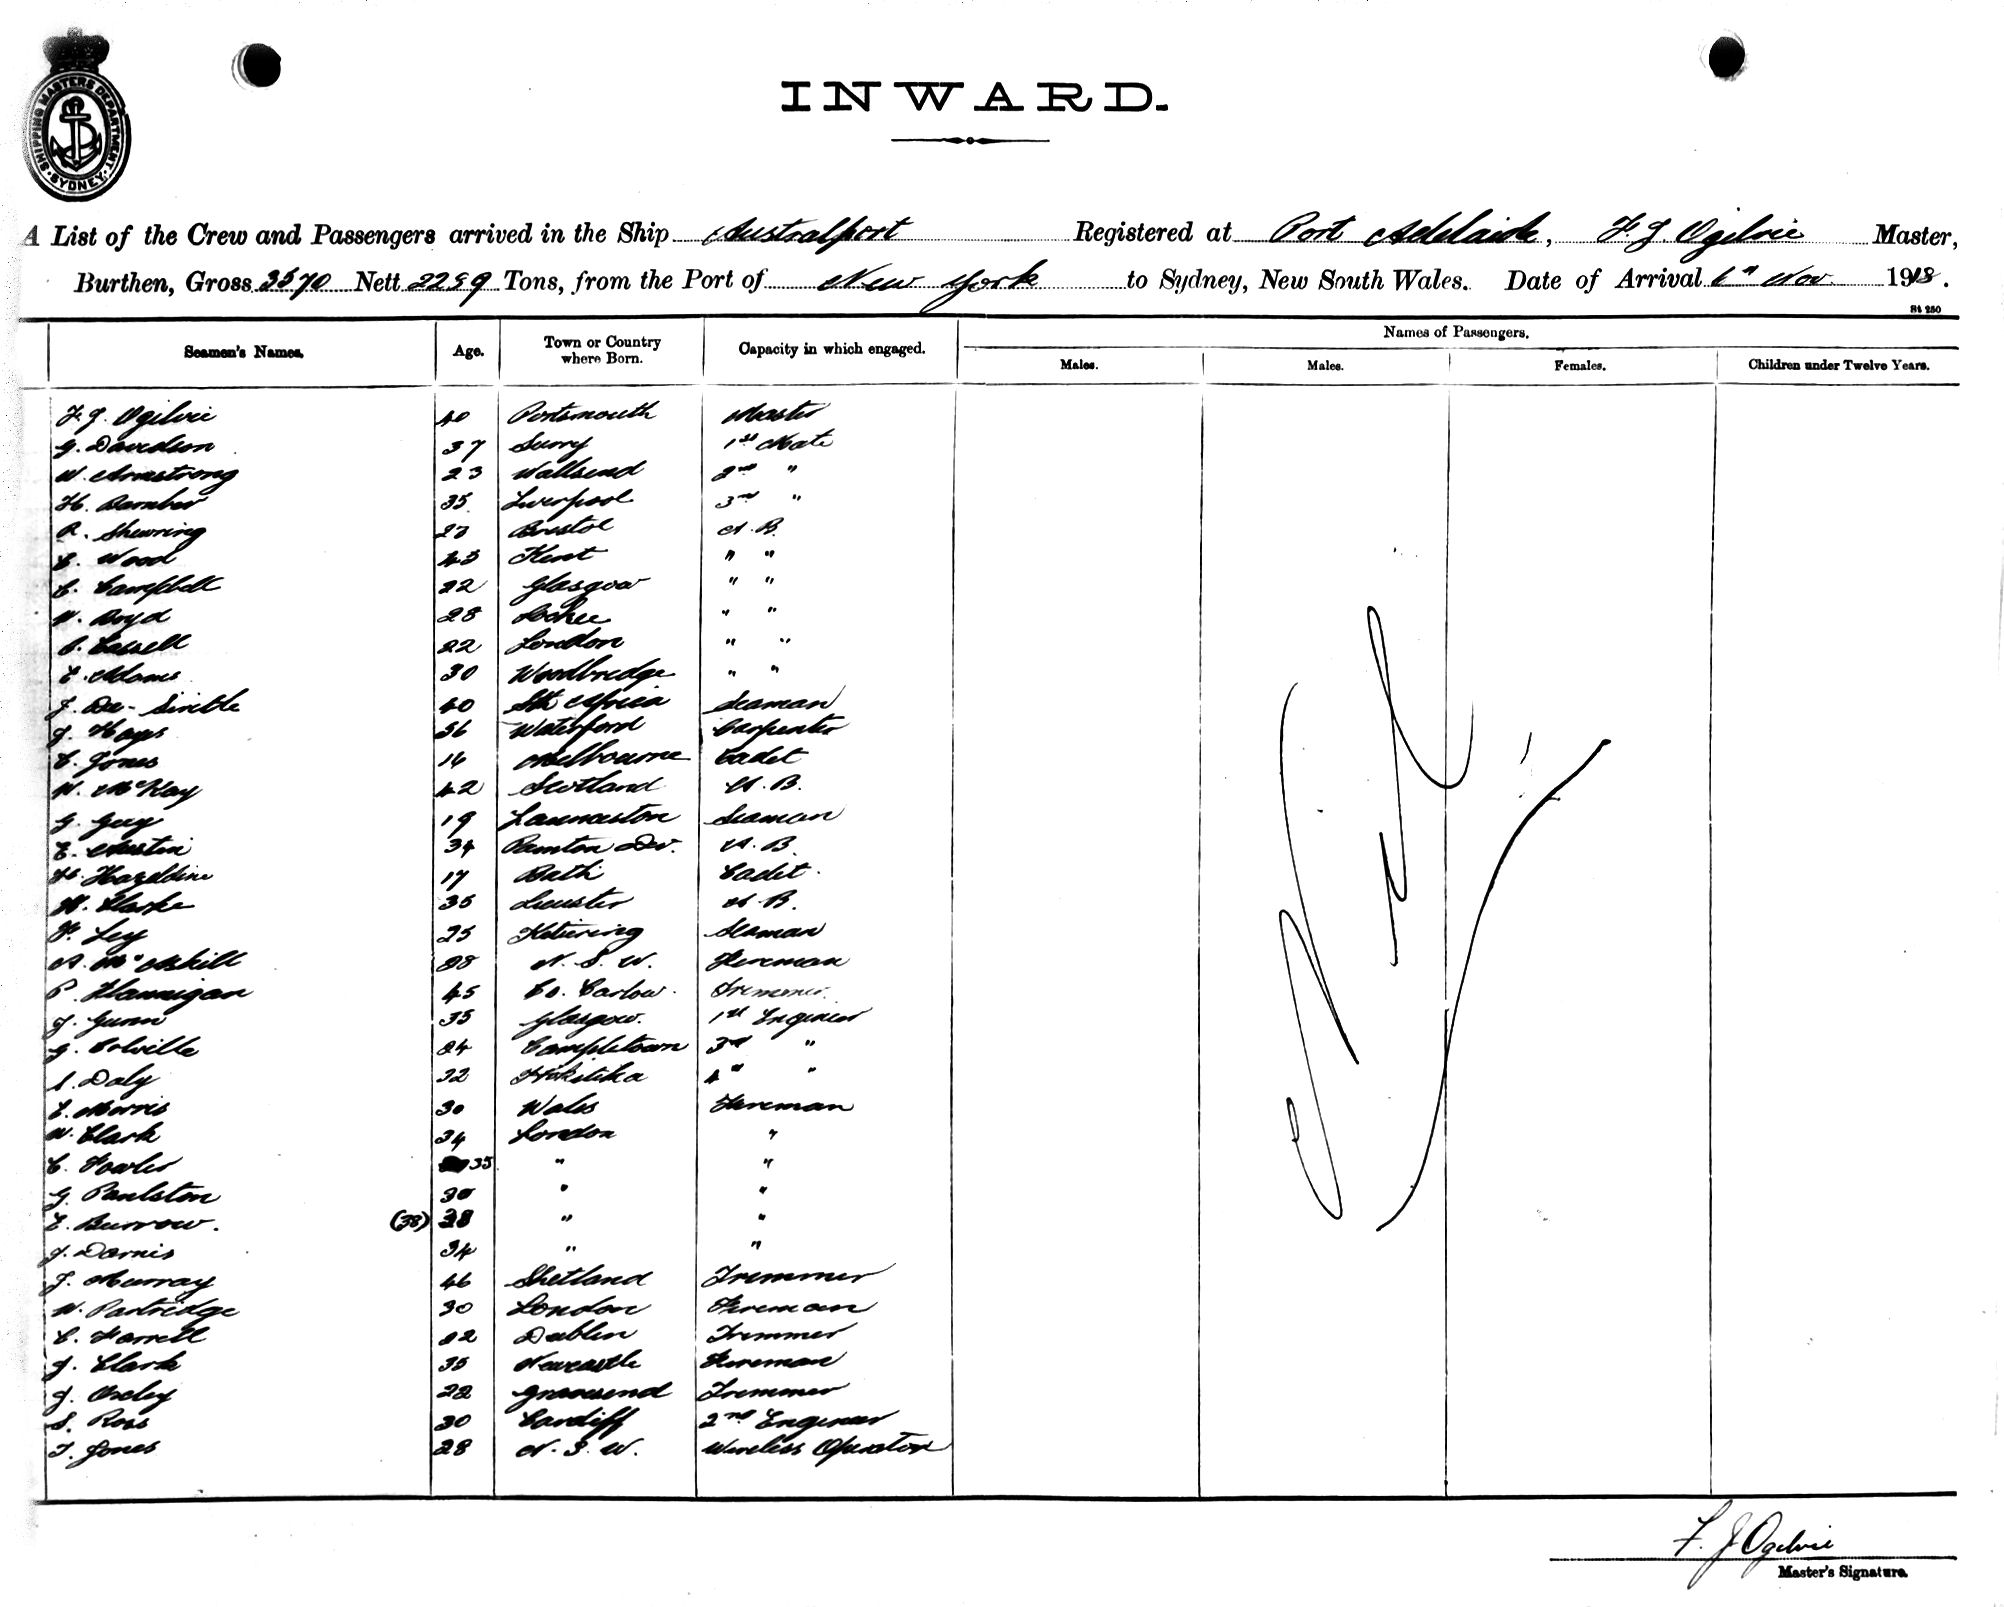 SHIPPING MASTERS DEPARTMENT. SYDNEY.
INWARD.
A List of the Crew and Passengers arrived in the Ship Australport Registered at Port Adelaide, F. J. Ogilvie Master,
Burthen, Gross 3570 Nett 2259 Tons, from the Port of New York to Sydney, New South Wales. Date of Arrival 6th Nov. 1918.
St 250
Seamen's Names. Age. Town or Country where Born. Capacity in which engaged. Names of Passengers.
Males. Males. Females. Children under Twelve Years.
F. J. Ogilvie 40 Portsmouth Master
G. Davidson 37 Surry 1st Mate
W. Armstrong 23 Wallsend 2nd "
H. Bamber 35 Liverpool 3rd "
R. Shewring 23 Bristol A. B.
E. Wood 43 Kent " "
C. Campbell 22 Glasgow " "
W. Boyd 28 Lochee " "
Cassell 22 London " "
E. Adams 30 Woodbridge " "
J. De- 40 Sth Africa Seaman
J. Hays 36 Waterford Carpenter
C. Jones 16 Melbourne Cadet
W. McKay 42 Scotland A. B.
G. Guy 19 Launceston Seaman
E. Austin 34 Dev. A. B.
H. Hazeldine 17 Bath Cadet.
W. Clarke 35 A. B.
F. Ley 25 Kettering Seaman
A. McAskill 28 N. S. W. Fireman
P. Flannigan 45 Co. Carlow. Trimmer.
J. Gunn 35 Glasgow. 1st Engineer
G. Colville 24 Campletown 3rd "
S. Daly 32 Hokitika 4th "
E. Morris 30 Wales Fireman
W. Clark 34 London "
C. Fowler 35 " "
G. Paulston 30 " "
E. Burrow. (38) 38 " "
J. Darnis 34 " "
J. Murray 46 Shetland Trimmer
W. Partridge 30 London Fireman
C. Farrell 22 Dublin Trimmer
J. Clark 35 Newcastle Fireman
J. Oxley 22 Gravesend Trimmer
S. Ross 30 Cardiff 2nd Engineer
T. Jones 28 N. S. W. Wireless Operator
Nil
F. J Ogilvie
Master's Signature.